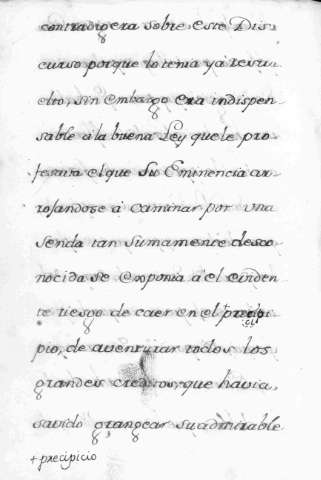 contradigera sobre este Dis-
curso porque lo tenia ya resu-
elto, sin embargo era indispen-
sable á la buena Ley que le pro-
fesaua el que Su Eminencia ar-
rojandose á caminar por una
senda tan sumamente desco-
nocida se exponia á el eviden-
te riesgo de caer en el +
pio, de aventurar todos los
grandes creditos, que havia,
savido grangear su admirable
+ precipicio